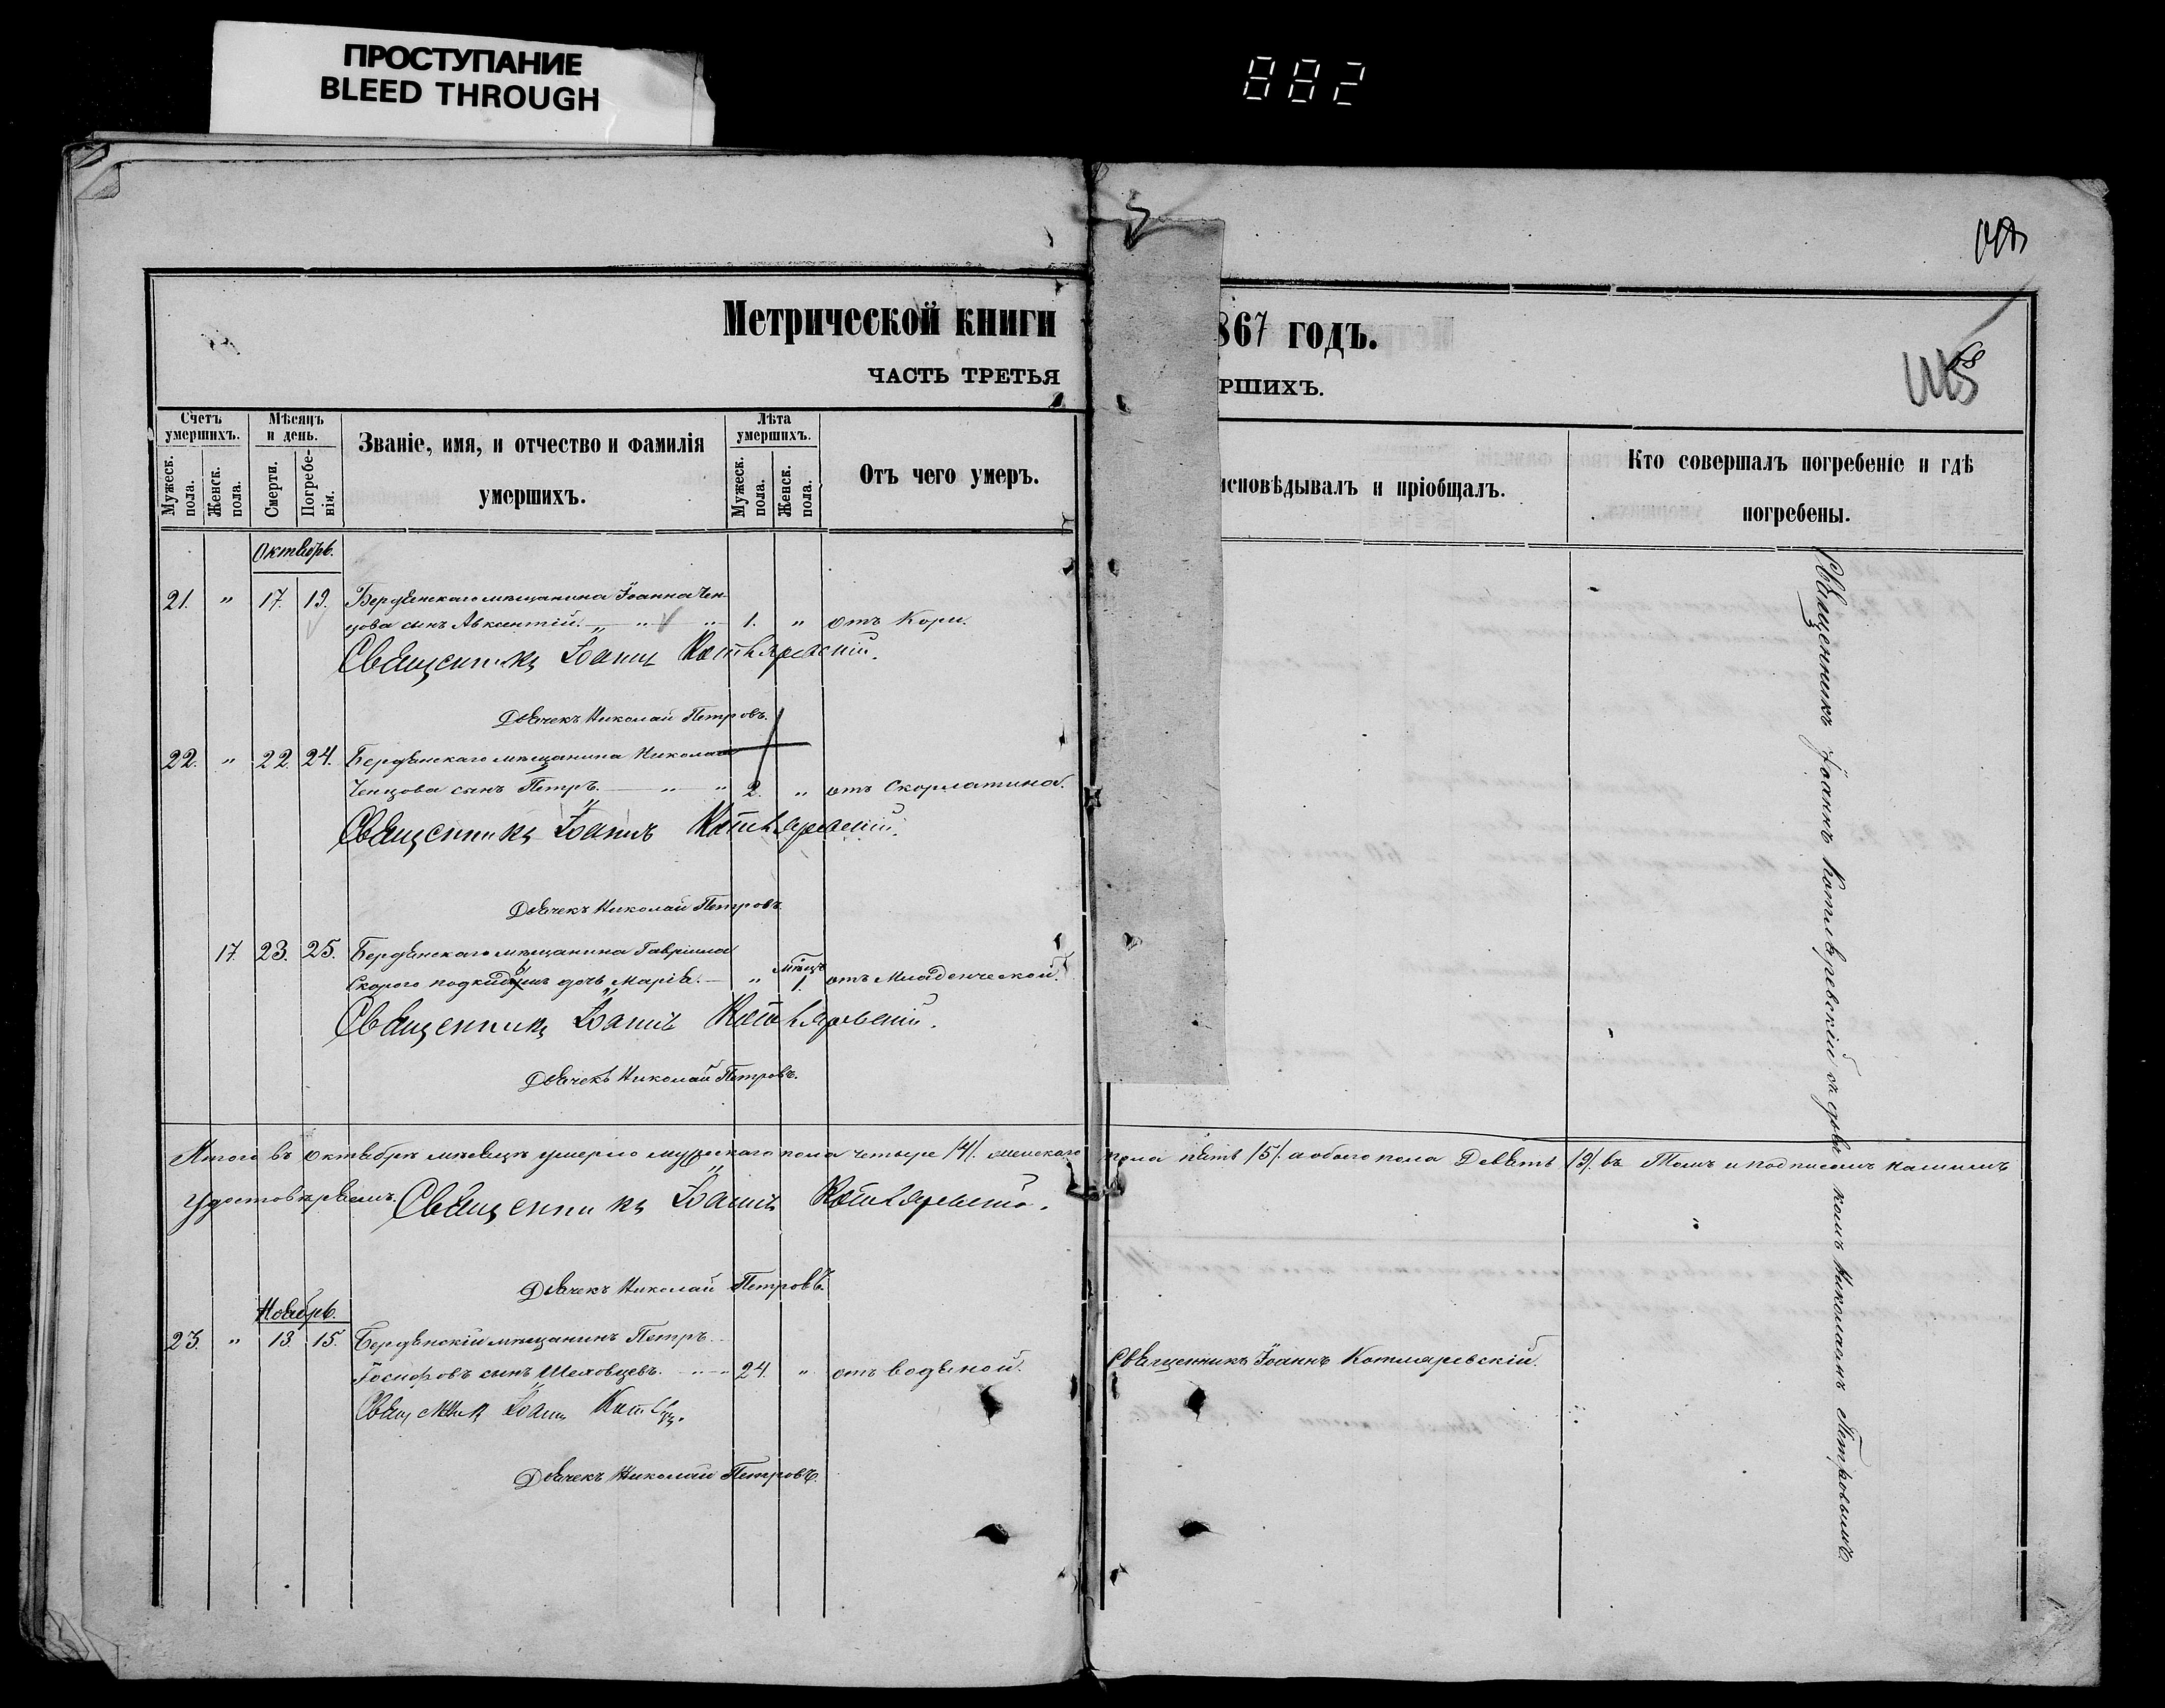 ПРОСТУПАНИЕ
BLEED THROUGH
882
Метрической книги
867 годъ.
ЧАСТЬ ТРЕТЬЯ
РШИХЪ.
Счетъ умершихъ.
Мужеск. пола.
Женск. пола.
Мѣсяцъ и день.
Смерти.
Погребенія.
Званіе, имя, и отчество и фамилія
умершихъ.
Лѣта умершихъ.
Мужеск. пола.
Женск. пола.
Отъ чего умеръ.
исповѣдывалъ и пріобщалъ.
Кто совершалъ погребеніе и гдѣ
погребены.
Октябрь.
21. " 17. 19. Бердянскаго мѣщанина Іоанна Чен
цова сынъ Авксентій. " " 1. " отъ Кори.
Священникъ Іоаннъ Котляревскій.
Дьячекъ Николай Петровъ.
22. " 22. 24. Бердянскаго мѣщанина Николая
Ченцова сынъ Петръ. " " 2. " отъ Скорлатина.
Священникъ Іоаннъ Котляревскій.
Дьячекъ Николай Петровъ.
17. 23. 25. Бердянскаго мѣщанина Гавріила
Скорого дочь Марія. " мѣсц. 1. отъ Младенческой.
Священникъ Іоаннъ Котляревскій.
Дьячекъ Николай Петровъ.
Итого въ октябрѣ мѣсяцѣ умерло мужескаго пола четыре /4/. женскаго пола пять /5/. а обоего пола Девять /9/. въ Томъ и подписомъ нашимъ
удостовѣряемъ. Священникъ Іоаннъ Котляревскій.
Дьячекъ Николай Петровъ.
Ноябрь.
23. " 13. 15. Бердянскій мѣщанинъ Петръ
Іосифовъ сынъ Шеховцевъ. 24. " отъ водяной. Священникъ Іоаннъ Котляревскій.
Священникъ Іоаннъ
Дьячекъ Николай Петровъ.
Священникъ Іоаннъ Котляревскій съ дьячкомъ Николаемъ Петровымъ